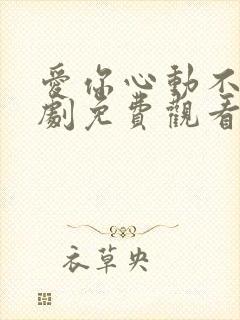 愛你心動不
劇免費觀看
衣草央